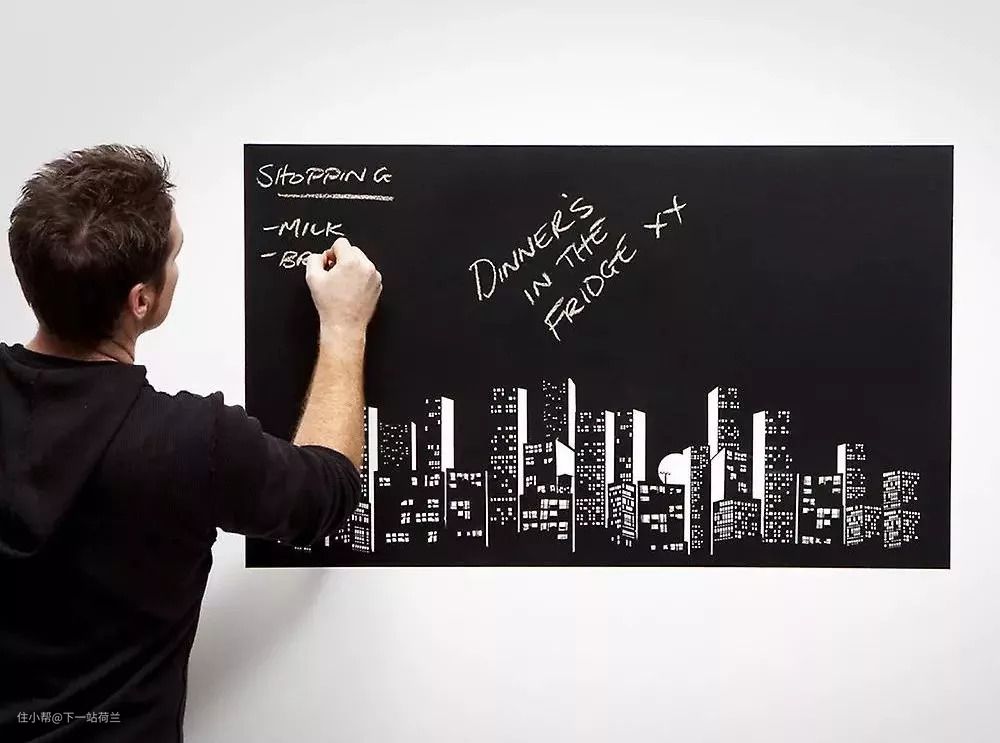 SHOPPING
-MILK
-BR
DINNER'S
IN THE
FRIDGE xx
住小帮@下一站荷兰